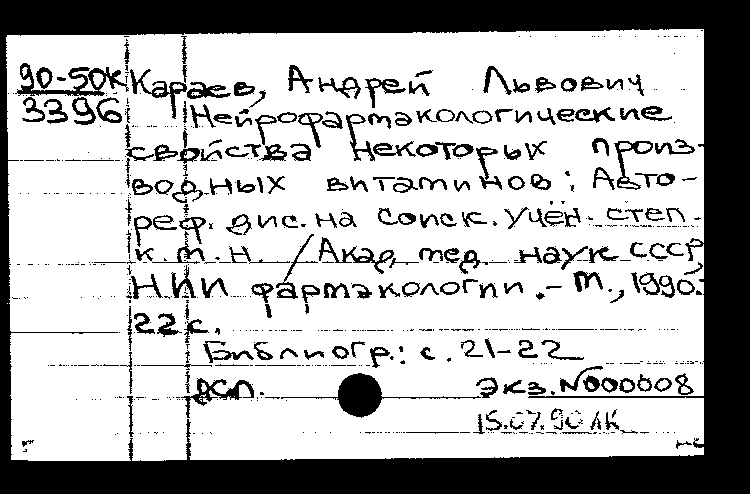 90-50К Караев, Андрей Львович
3396 Нейрофармакологические
свойства некоторых произ-
водных витаминов: Авто-
реф. дис. на соиск. учён. степ.
к.м.н. / Акад. мед. наук СССР,
НИИ фармакологии. - М., 1990.-
22 с.
Библиогр.: с. 21-22
ДСП. Экз. №000008
15.07.90 ЛК